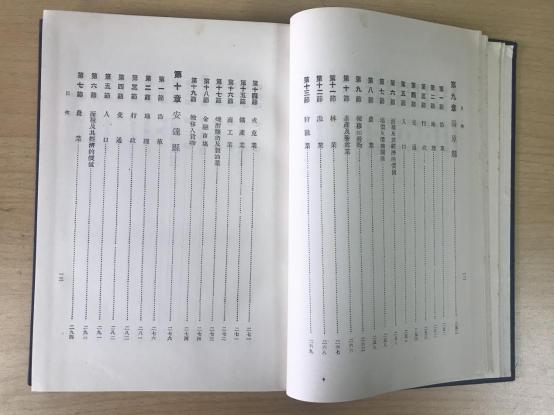 目次
第九章
第一節 沿革
第二節 地理
第三節 行政
第四節 交通
第五節 人口
第六節 面積及其經濟的價値
第七節
第八節 農業
第九節
第十節 畜產及畜產業
第十一節 林業 二六七
第十二節 漁業 二六八
第十三節 狩獵業 二六九
第十四節 皮克業 二七一
第十五節 鑛產業 二七一
第十六節 商工業 二七二
第十七節 燒酎釀造及製油業 二七三
第十八節 金融市塲 二七四
第十九節 輸移入貨物 二七四
第十章 安達縣 二七九
第一節 沿革 二七九
第二節 地理 二八一
第三節 行政 二八一
第四節 交通 二八二
第五節 人口 二九一
第六節 面積及其經濟的價値 二九三
第七節 農業 二九四
目次
一三